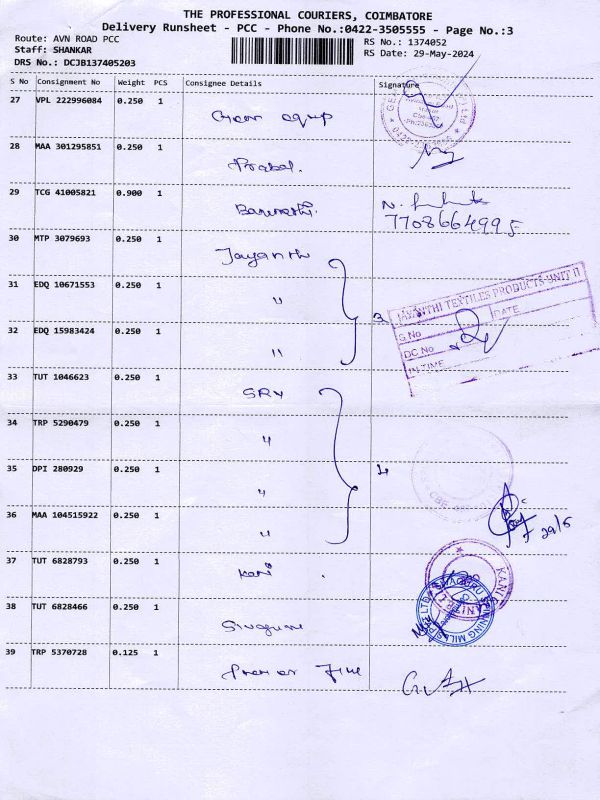 THE PROFESSIONAL COURIERS, COIMBATORE
Delivery Runsheet - PCC - Phone No.:0422-3505555 - Page No.:3
Route: AVN ROAD PCC
RS No.: 1374052
Staff: SHANKAR
RS Date: 29-May-2024
DRS No.: DCJB137405203
S No Consignment No Weight PCS Consignee Details Signature
27 VPL 222996084 0.250 1
28 MAA 301295851 0.250 1
29 TCG 41005821 0.900 1
7708664995
30 MTP 3079693 0.250 1 Jayanthi
31 EDQ 10671553 0.250 1 "
3
JAYANTHI TEXTILES PRODUCTS UNIT II
G.No DATE
32 EDQ 15983424 0.250 1 "
DC No
IN TIME
33 TUT 1046623 0.250 1
34 TRP 5290479 0.250 1 "
35 DPI 280929 0.250 1 "
4
36 MAA 104515922 0.250 1 "
29/5
37 TUT 6828793 0.250 1 Kani
KANI
38 TUT 6828466 0.250 1
SPINNING MILLS
39 TRP 5370728 0.125 1